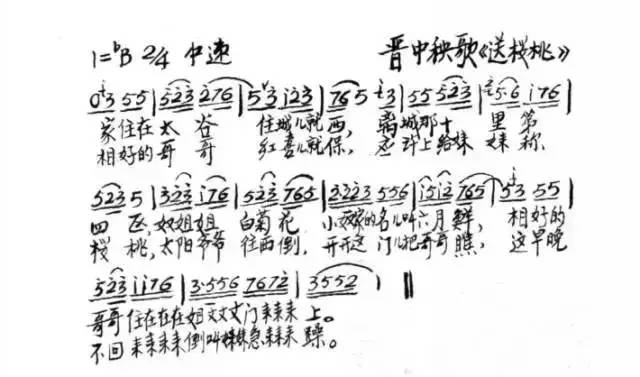 1=ᵇB 2/4 中速 晋中秧歌《送樱桃》
03 55 | 523 276 | 53 123 | 765 3 | 55 523 | 5·6 176 |
家住在太谷 住城儿就西, 离城那十里第
相好的哥哥 红喜儿就保, 上给妹妹称
5235 | 323 176 | 523 765 | 32223 556 | 1512 765 | 53 55 |
四区, 奴姐姐 白菊花 小奴家的名儿叫六月鲜, 相好的
樱桃, 太阳爷爷 往西倒, 开开这门儿把哥哥瞧, 这早晚
523 1176 | 3·556 7672 | 3552 ) ‖
哥哥住在在在姐丈丈丈门来来来上。
不回来来来来倒叫妹妹急来来来躁。